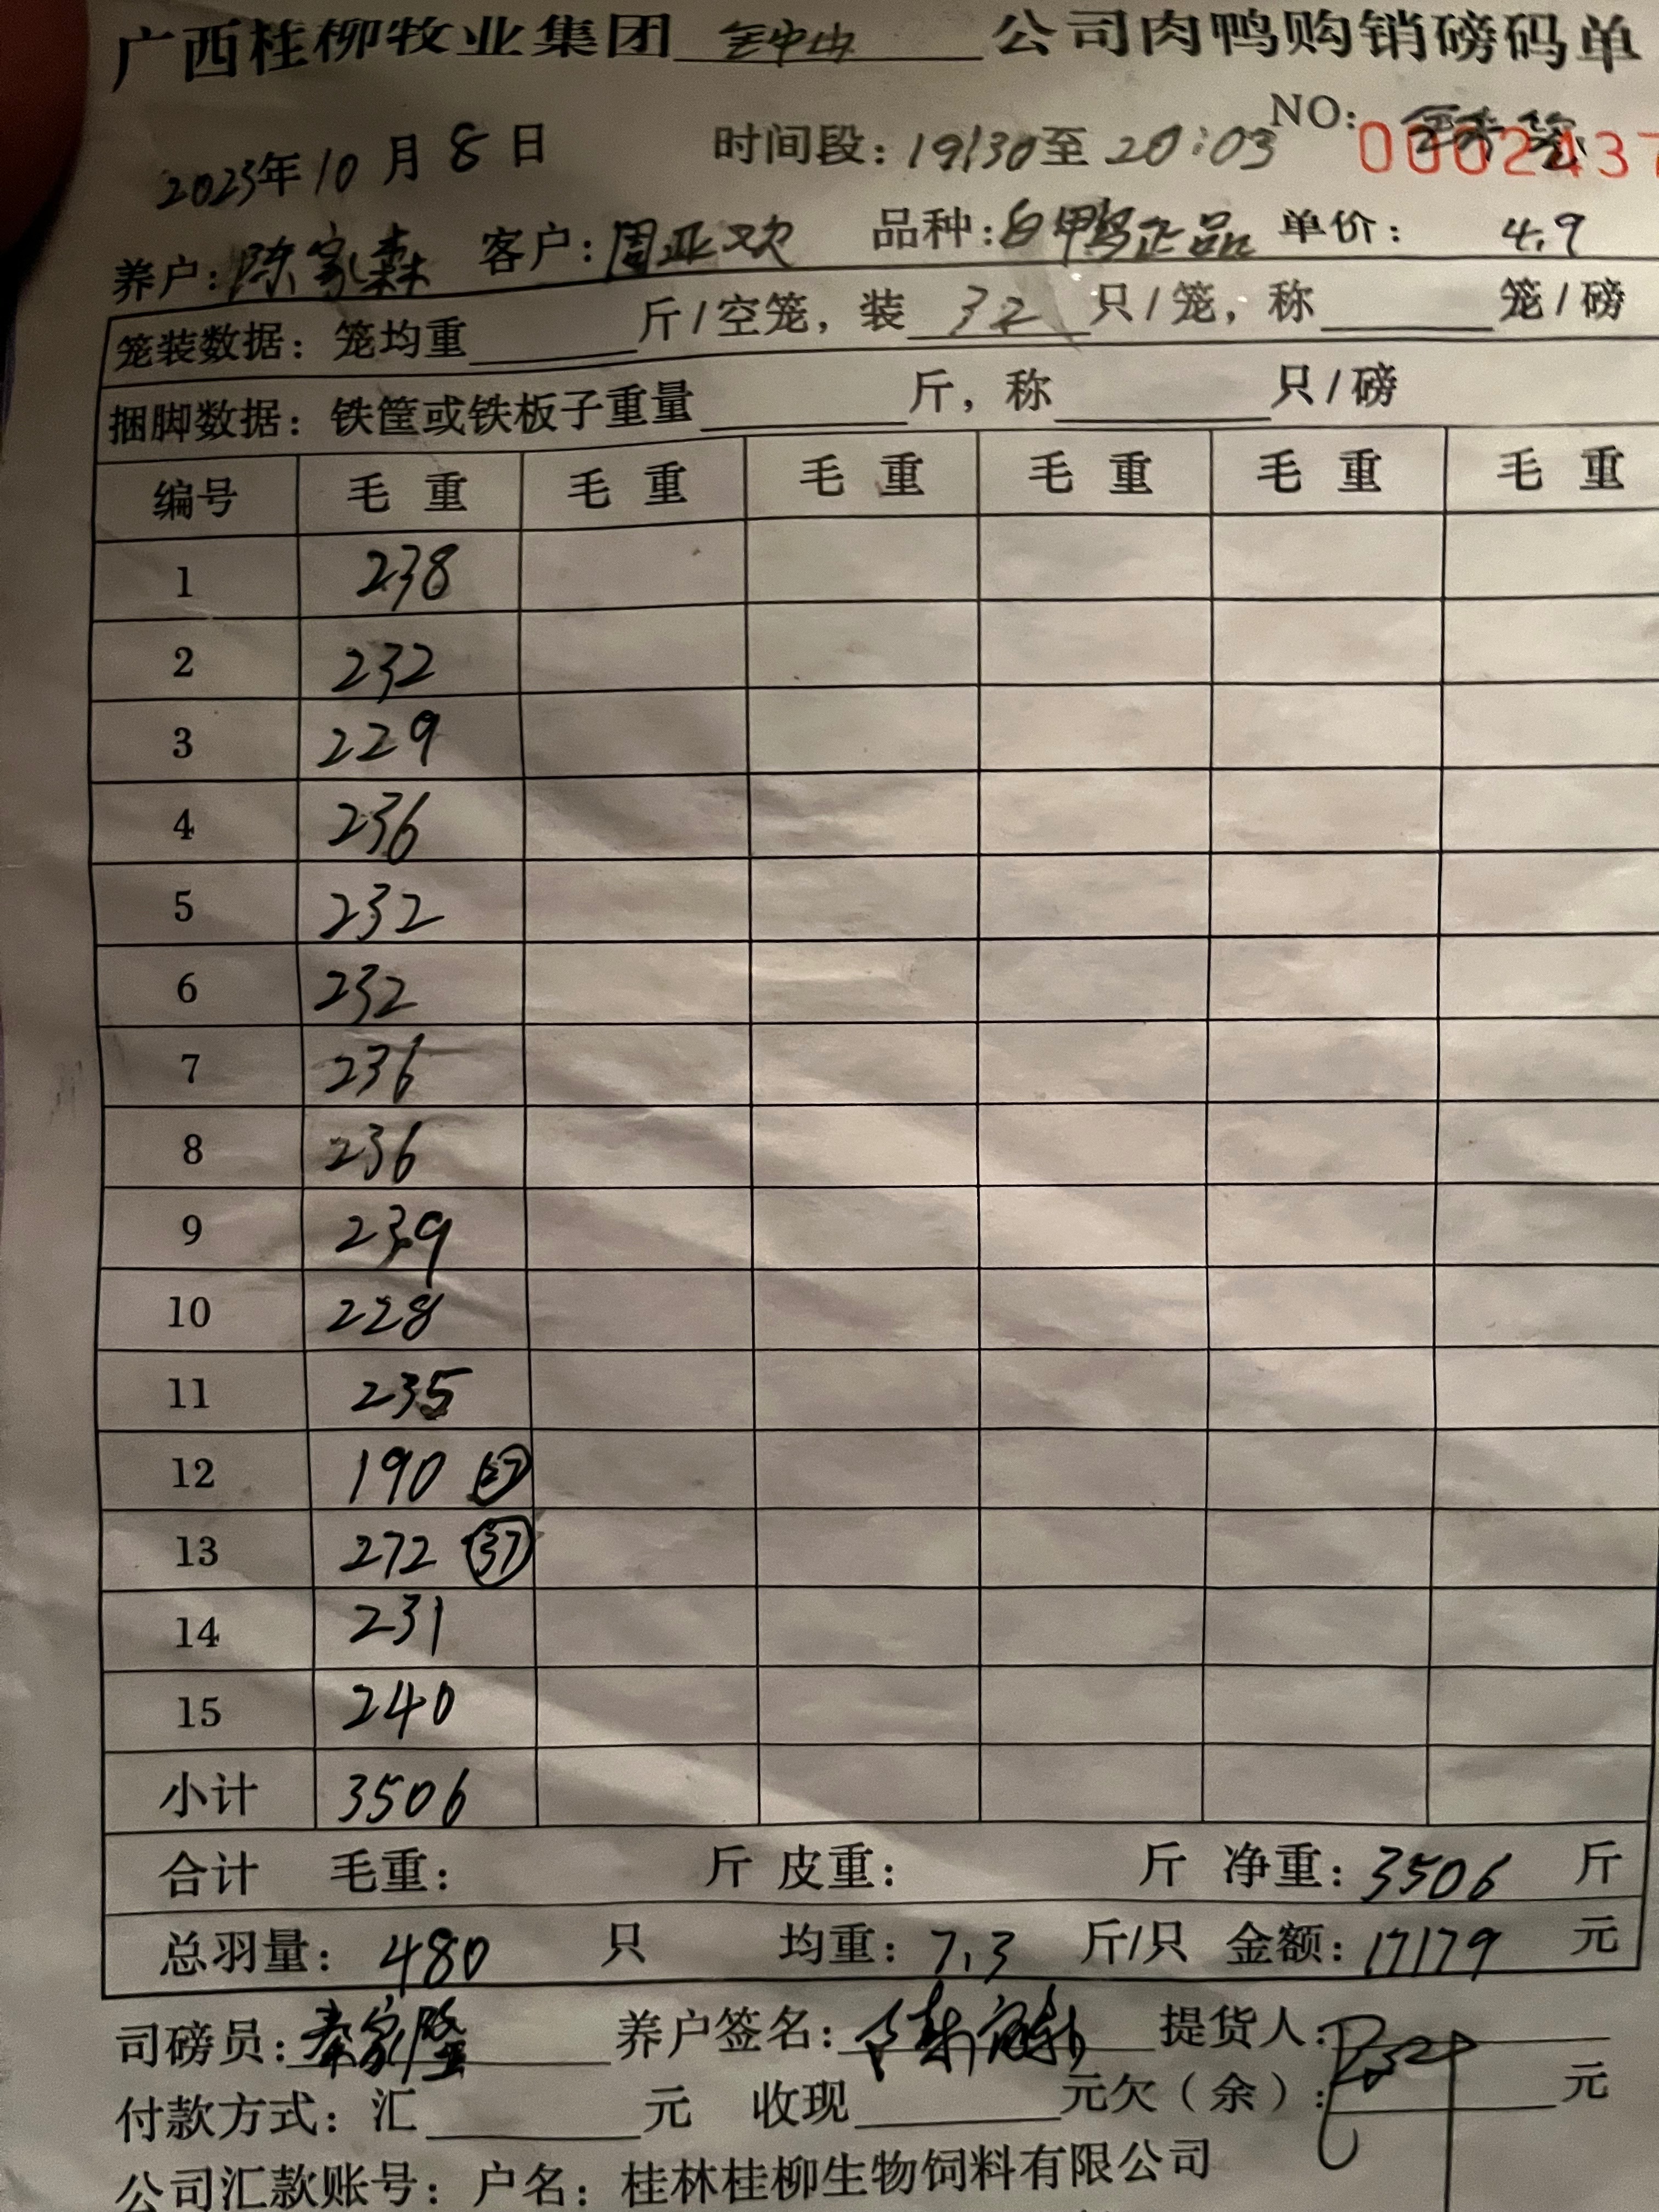 广西桂柳牧业集团 钟山 公司肉鸭购销磅码单
NO: 0002437
2023年10月8日 时间段:19:30至20:03
养户:陈家森 客户:周亚欢 品种:白鸭正品 单价: 4.9
笼装数据:笼均重 斤/空笼,装 32 只/笼,称 笼/磅
捆脚数据:铁筐或铁板子重量 斤,称 只/磅
编号 毛重 毛重 毛重 毛重 毛重 毛重
1 238
2 232
3 229
4 236
5 232
6 232
7 236
8 236
9 239
10 228
11 235
12 190 27
13 272 37
14 231
15 240
小计 3506
合计 毛重: 斤 皮重: 斤 净重:3506 斤
总羽量: 480 只 均重:7.3 斤/只 金额:17179 元
司磅员:秦家隆 养户签名: 提货人:
付款方式:汇 元 收现 元欠(余): 元
公司汇款账号:户名:桂林桂柳生物饲料有限公司